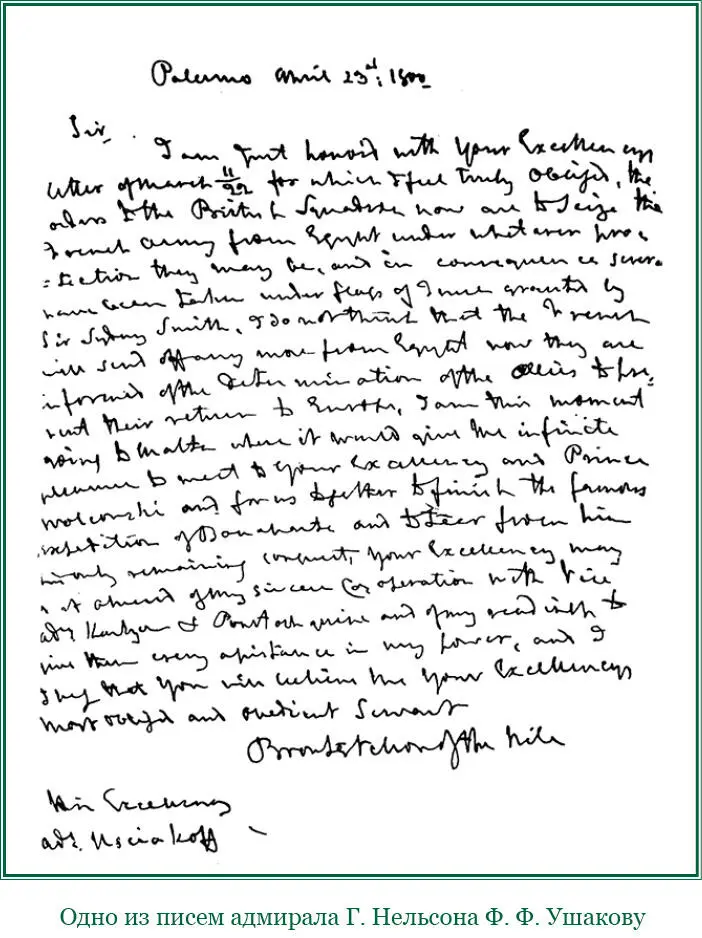 Palermo April 23d: 1800
Sir
I am just honord with Your Excellencys
letter of March 11/22 for which I feel truly obliged, the
orders to the British Squadron now are to seize the
French army from Egypt under whatever pro-
=tection they may be, and in consequence severa
have been taken under flags of Truce granted by
Sir Sydney Smith, I do not think that the French
will send off any more from Egypt now they are
informed of the determination of the allies to pre-
vent their return to Europe, I am this moment
going to Malta where it would give me infinite
pleasure to meet to Your Excellency and Prince
Wolconski and for us together to finish the famous
expedition of Bonaparte and to tear from him
his only remaining conquest, Your Excellency may
assured of my sincere Cooperation with Vice
adl. & and of my readiness to
give them every assistance in my power, and I
beg that You will believe me Your Excellencys
most obliged and obedient Servant
Bronte Nelson of the Nile
His Excellency
adl. Usciakoff
Одно из писем адмирала Г. Нельсона Ф. Ф. Ушакову